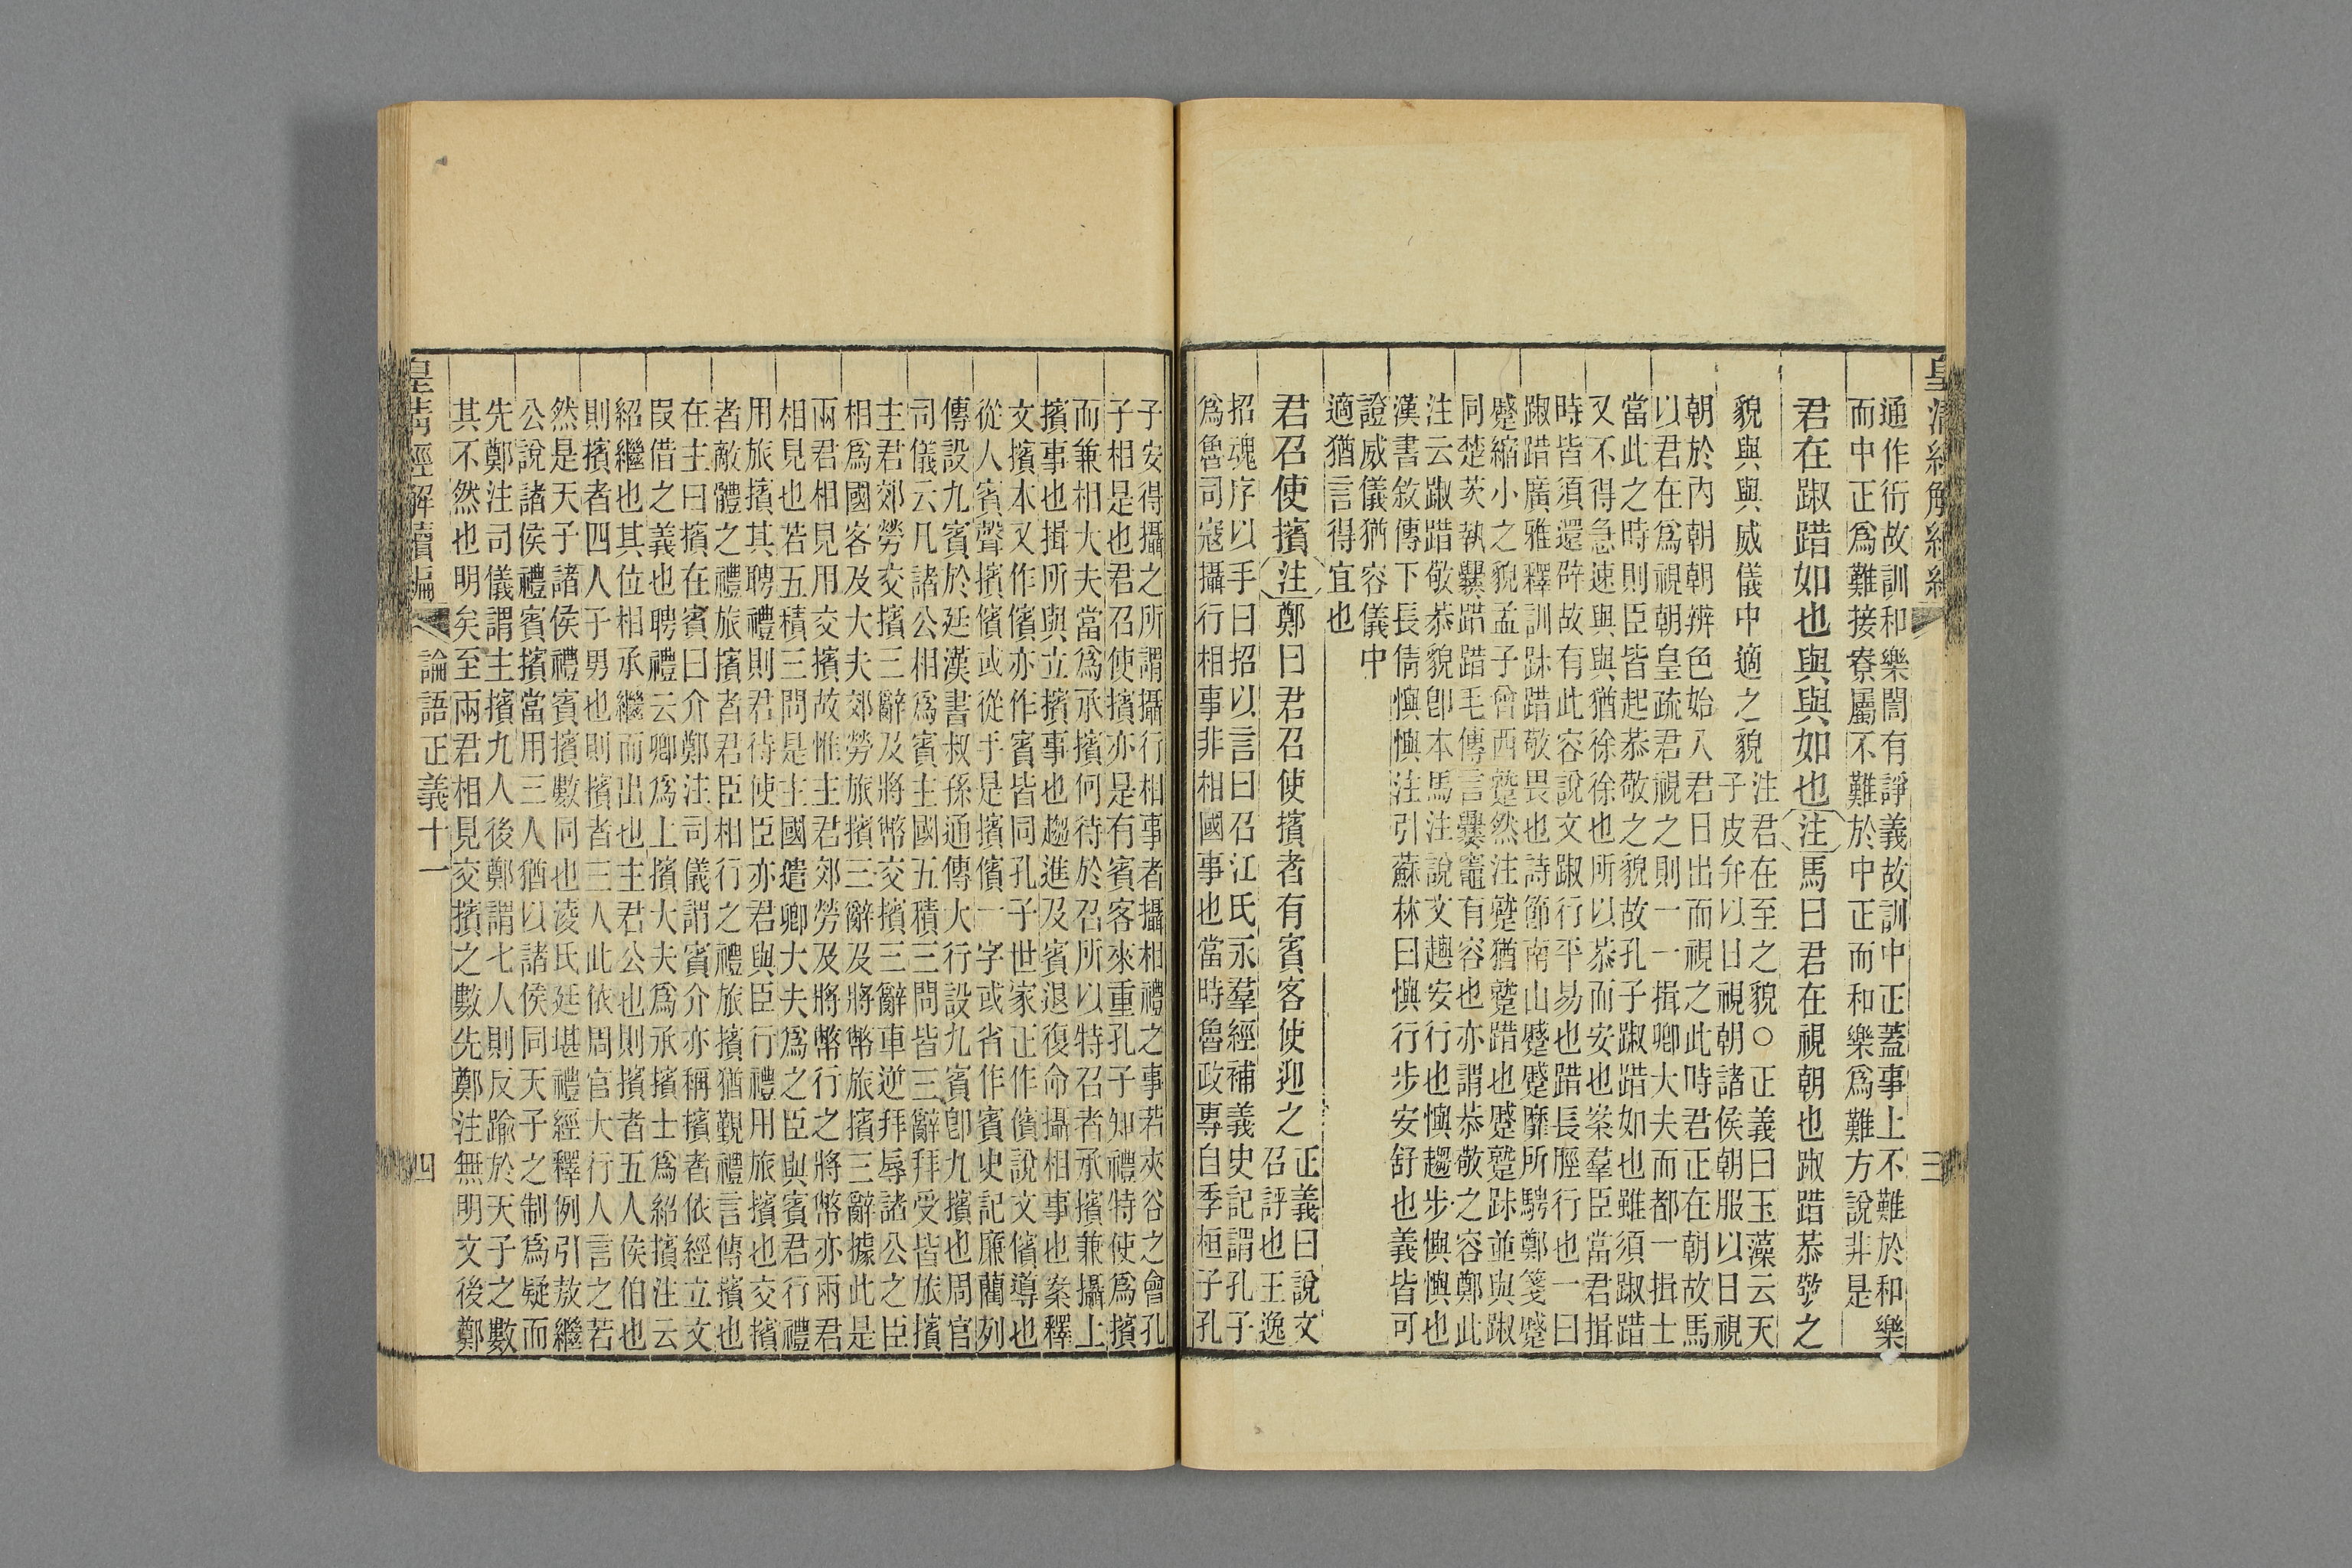 通作衎故訓和樂誾有諍義故訓中正蓋事上不難於和樂
而中正爲難接寮屬不難於中正而和樂爲難方說非是
君在踧踖如也與與如也注馬曰君在視朝也踧踖恭敬之
貌與與威儀中適之貌
注君在至之貌○正義曰玉藻云天
子皮弁以日視朝諸侯朝服以日視
朝於內朝朝辨色始入君日出而視之此時君正在朝故馬
以君在爲視朝皇疏君視之則一一揖卿大夫而都一揖士
當此之時則臣皆起恭敬之貌故孔子踧踖如也雖須踧踖
又不得急速與與猶徐徐也所以恭而安也案羣臣當君揖
時皆須還辟故有此容說文踧行平易也踖長脛行也一曰
踧踖廣雅釋訓踧踖敬畏也詩節南山蹙蹙靡所騁鄭箋蹙
蹙縮小之貌孟子曾西蹵然注蹵猶蹵踖也蹙蹵並與踧
同楚茨執爨踖踖毛傳言爨竈有容也亦謂恭敬之容鄭此
注云踧踖敬恭貌卽本馬注說文安行也懙趨步懙懙也
漢書敘傳下長倩懙懙注引蘇林曰懙行步安舒也義皆可
證威儀猶容儀中
適猶言得宜也
君召使擯注鄭曰君召使擯者有賓客使迎之
正義曰說文
召評也王逸
招魂序以手曰招以言曰召江氏永羣經補義史記謂孔子
爲魯司寇攝行相事非相國事也當時魯政專自季桓子孔
三
子安得攝之所謂攝行相事者攝相禮之事若夾谷之會孔
子相是也君召使擯亦是有賓客來重孔子知禮特使爲擯
而兼相大夫當爲承擯何待於召所以特召者承擯兼攝上
擯事也揖所與立擯事也趨進及賓退復命攝相事也案釋
文擯本又作儐亦作賓皆同孔子世家正作儐說文儐導也
從人賓聲擯儐或從手是擯儐一字或省作賓史記廉藺列
傳設九賓於廷漢書叔孫通傳大行設九賓卽九擯也周官
司儀云凡諸公相爲賓主國五積三問皆三辭拜受皆旅擯
主君郊勞交擯三辭及將幣交擯三辭車逆拜辱諸公之臣
相爲國客及大夫郊勞旅擯三辭及將幣旅擯三辭據此是
兩君相見用交擯故惟主君郊勞及將幣行之將幣亦兩君
相見也若五積三問是主國遣卿大夫爲之臣與賓君行禮
用旅擯其聘禮則君待使臣亦君與臣行禮用旅擯也交擯
者敵體之禮旅擯者君臣相行之禮旅擯猶覲禮言傳擯也
在主曰擯在賓曰介鄭注司儀謂賓介亦稱擯者依經立文
叚借之義也聘禮云卿爲上擯大夫爲承擯士爲紹擯注云
紹繼也其位相承繼而出也主君公也則擯者五人侯伯也
則擯者四人子男也則擯者三人此依周官大行人言之若
然是天子諸侯禮賓擯數同也淩氏廷堪禮經釋例引敖繼
公說諸侯禮賓擯當用三人猶以諸侯同天子之制爲疑而
先鄭注司儀謂主擯九人後鄭謂七人則反踰於天子之數
其不然也明矣至兩君相見交擯之數先鄭注無明文後鄭
皇清經解續編
論語正義十一
四